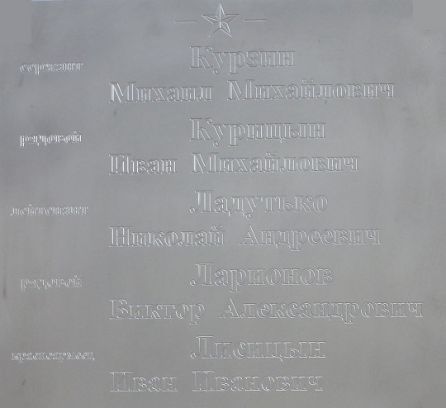 сержант Курзин
Михаил Михайлович
рядовой Курицын
Иван Михайлович
лейтенант Ладутько
Николай Андреевич
рядовой Ларионов
Виктор Александрович
красноармеец Лисицын
Иван Иванович